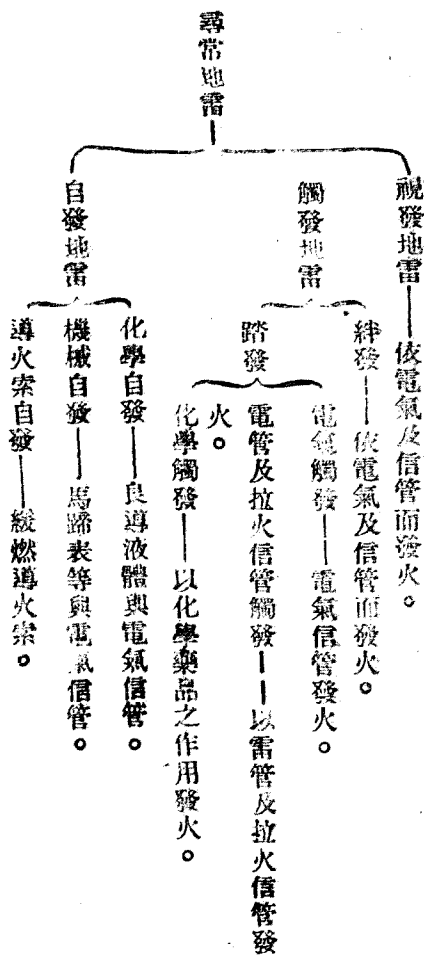 尋常地雷
視發地雷——依電氣及信管而發火。
觸發地雷
絆發——依電氣及信管而發火。
踏發
電氣觸發——電氣信管發火。
電管及拉火信管觸發——以雷管及拉火信管發
火。
化學觸發——以化學藥品之作用發火。
自發地雷
化學自發——良導液體與電氣信管。
機械自發——馬蹄表等與電氣信管。
導火索自發——緩燃導火索。